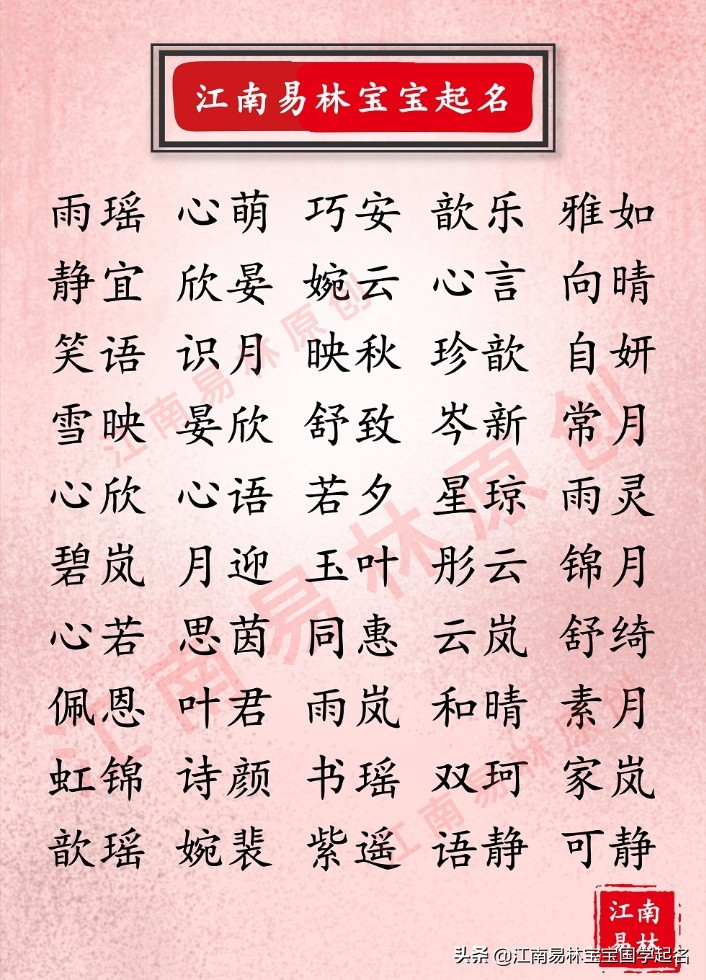 江南易林宝宝起名
雨瑶 心萌 巧安 歆乐 雅如
静宜 欣晏 婉云 心言 向晴
笑语 识月 映秋 珍歆 自妍
雪映 晏欣 舒致 岑新 常月
心欣 心语 若夕 星琼 雨灵
碧岚 月迎 玉叶 彤云 锦月
心若 思茵 同惠 云岚 舒绮
佩恩 叶君 雨岚 和晴 素月
虹锦 诗颜 书瑶 双珂 家岚
歆瑶 婉裴 紫遥 语静 可静
江南易林原创
江南易林原创
江南易林原创
江南
易林
头条 @江南易林宝宝国学起名